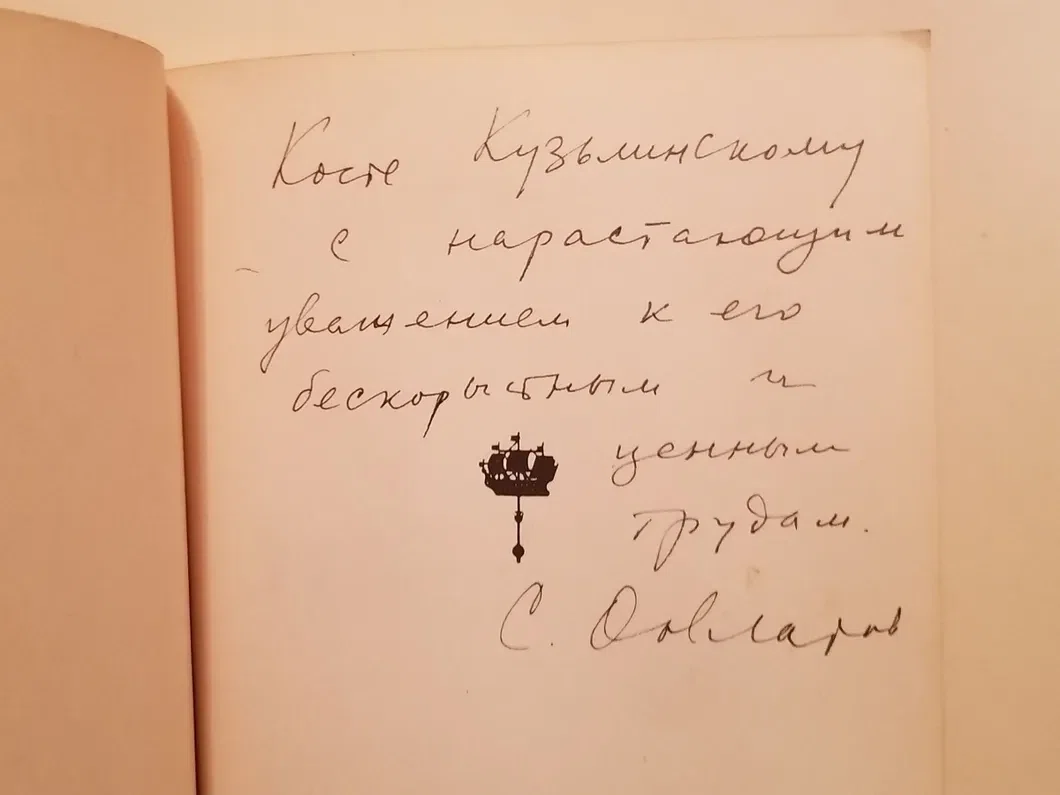 Косте Кузьминскому
с нарастающим
уважением к его
бескорыстным и
ценным
трудам.
С. Довлатов